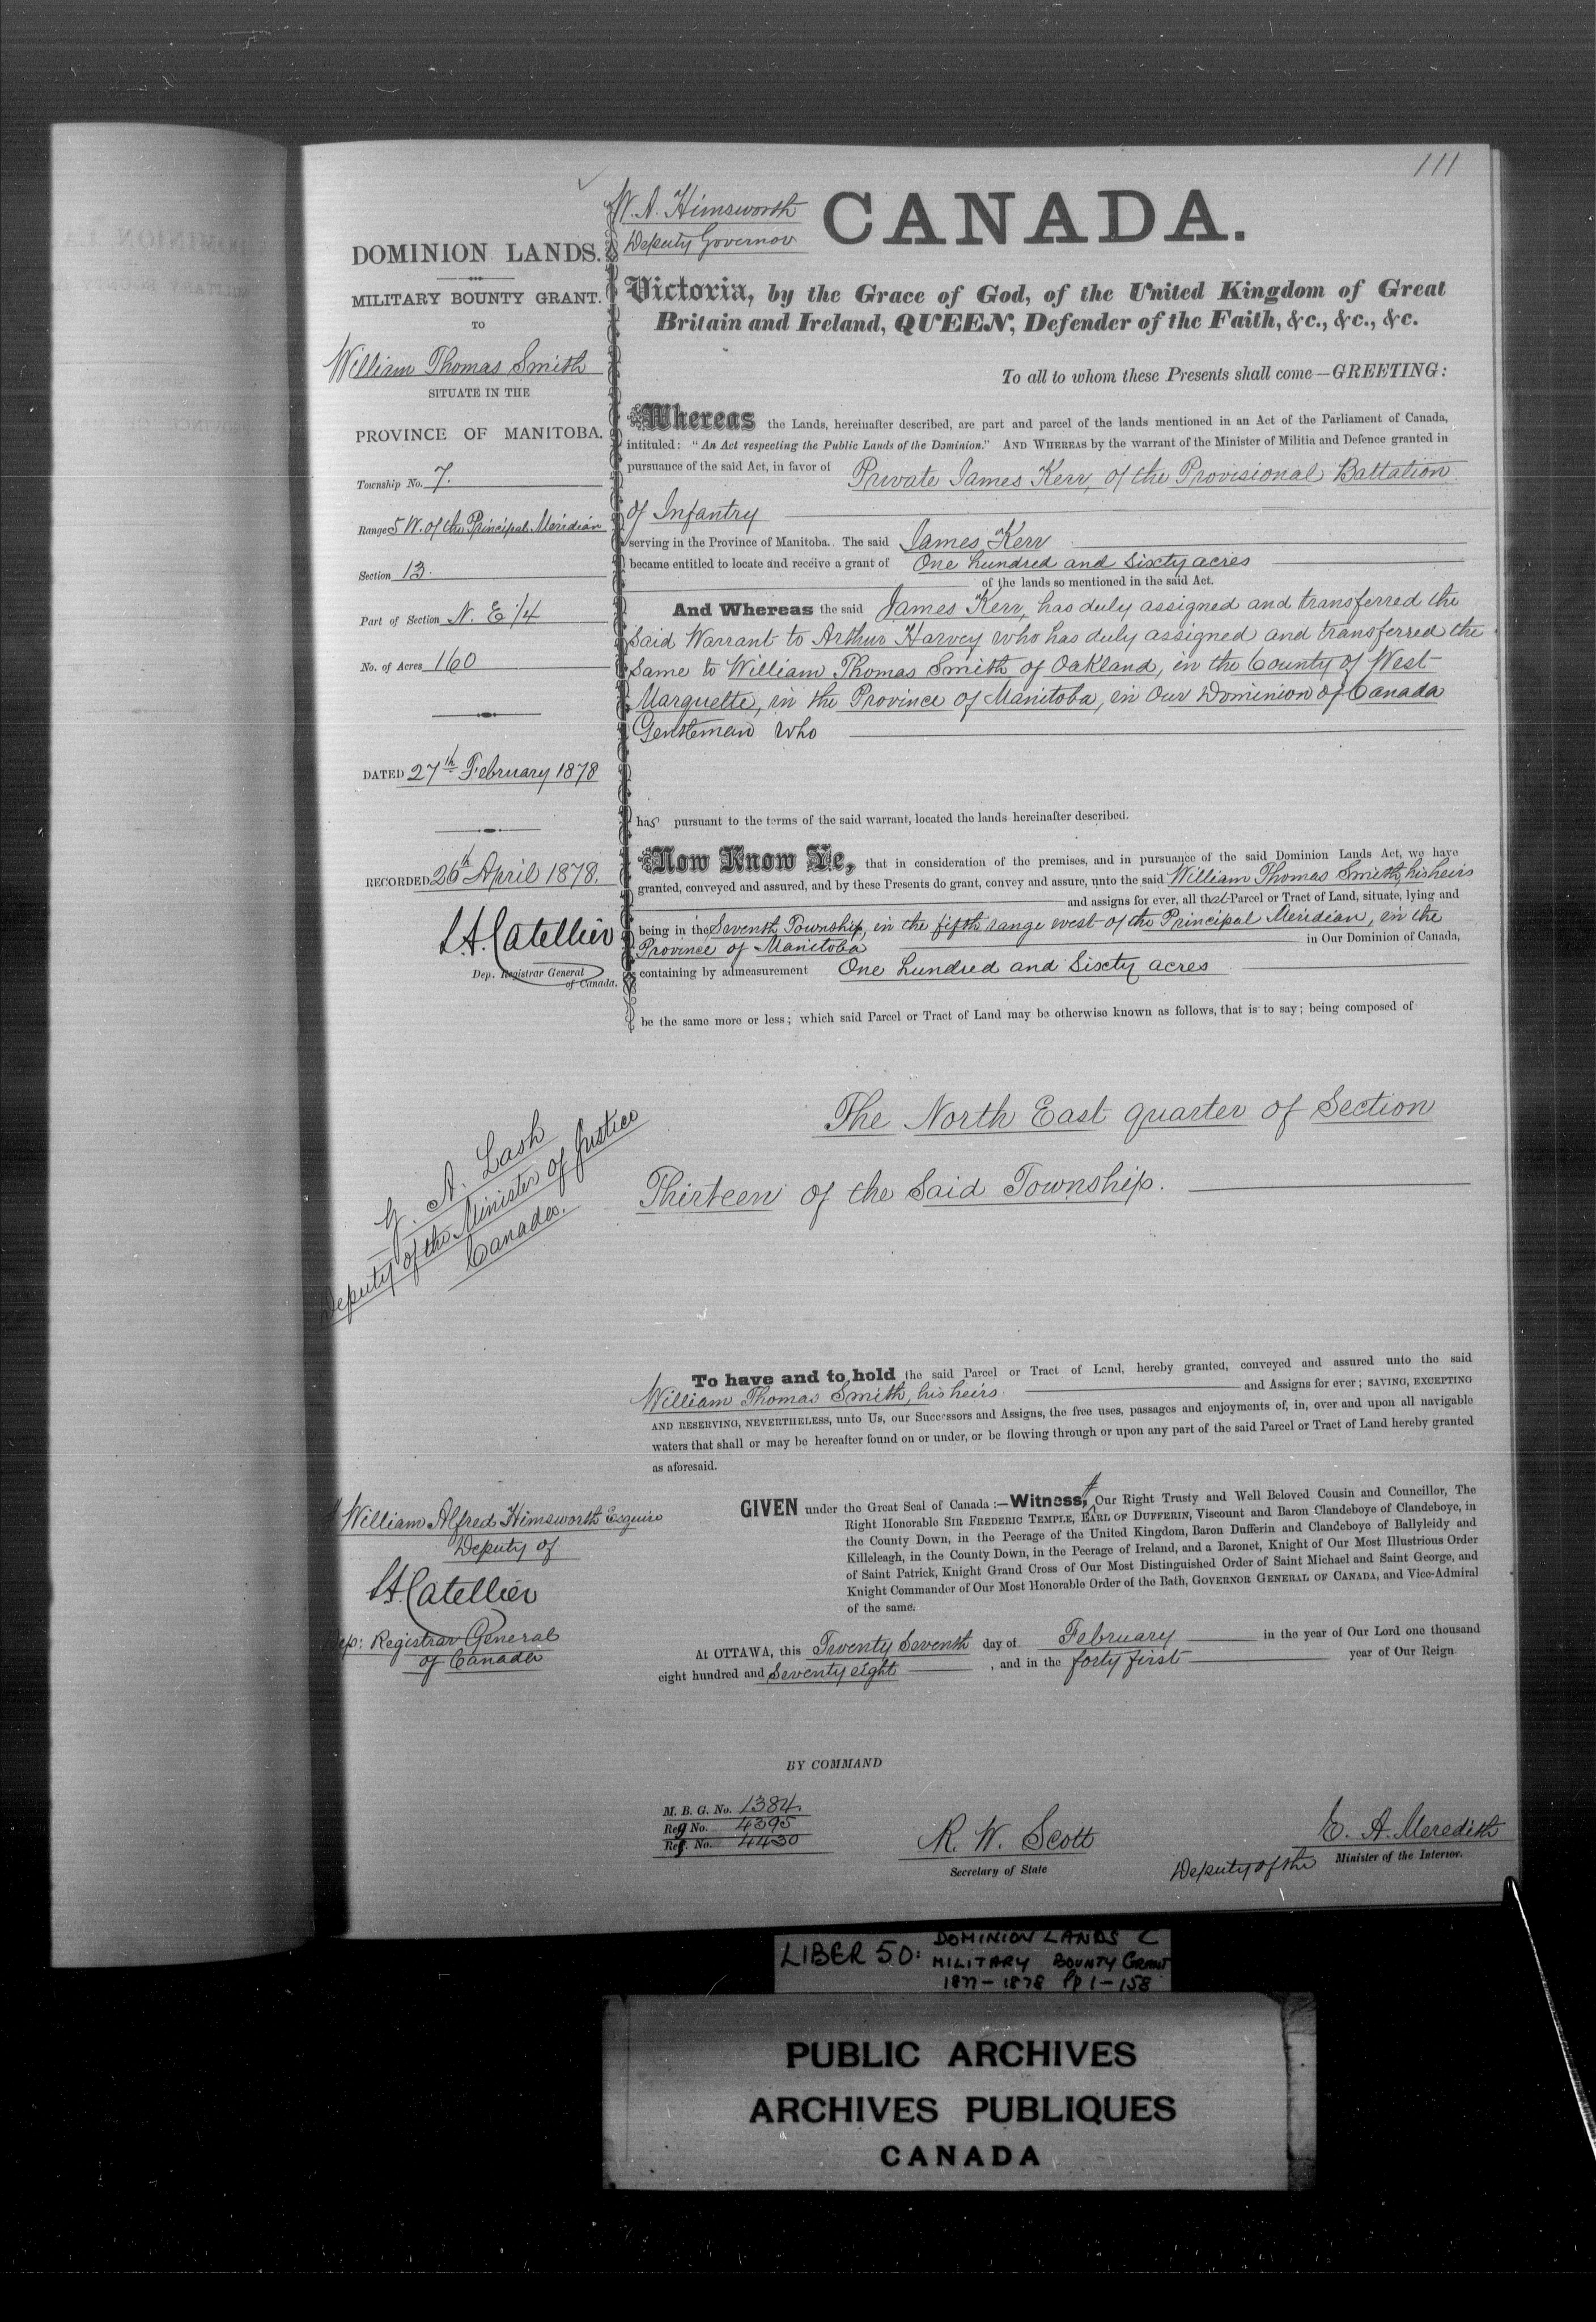 111
W. A. Himsworth
Deputy Governor
CANADA.
DOMINION LANDS.
MILITARY BOUNTY GRANT.
TO
William Thomas Smith
SITUATE IN THE
PROVINCE OF MANITOBA.
Township No. 7.
Range 5 W. of the Principal Meridian
Section 13.
Part of Section N. E 1/4
No. of Acres 160
DATED 27th February 1878
RECORDED 26th April 1878.
L. A. Catellier
Dep. Registrar General
of Canada.
Victoria, by the Grace of God, of the United Kingdom of Great
Britain and Ireland, QUEEN, Defender of the Faith, &c., &c., &c.
To all to whom these Presents shall come—GREETING:
Whereas the Lands, hereinafter described, are part and parcel of the lands mentioned in an Act of the Parliament of Canada,
intituled: "An Act respecting the Public Lands of the Dominion." AND WHEREAS by the warrant of the Minister of Militia and Defence granted in
pursuance of the said Act, in favor of Private James Kerr, of the Provisional Battalion
of Infantry
serving in the Province of Manitoba. The said James Kerr
became entitled to locate and receive a grant of One hundred and Sixty acres
of the lands so mentioned in the said Act.
And Whereas the said James Kerr, has duly assigned and transferred the
Said Warrant to Arthur Harvey who has duly assigned and transferred the
Same to William Thomas Smith of Oakland, in the County of West
Marquette, in the Province of Manitoba, in Our Dominion of Canada
Gentleman who
has pursuant to the terms of the said warrant, located the lands hereinafter described.
Now Know Ye, that in consideration of the premises, and in pursuance of the said Dominion Lands Act, we have
granted, conveyed and assured, and by these Presents do grant, convey and assure, unto the said William Thomas Smith, his heirs
and assigns for ever, all that Parcel or Tract of Land, situate, lying and
being in the Seventh Township, in the fifth range west of the Principal Meridian, in the
Province of Manitoba in Our Dominion of Canada,
containing by admeasurement One hundred and Sixty acres
be the same more or less; which said Parcel or Tract of Land may be otherwise known as follows, that is to say; being composed of
The North East quarter of Section
Thirteen of the Said Township.
A. Lash
Deputy of the Minister of Justice
Canada.
To have and to hold the said Parcel or Tract of Land, hereby granted, conveyed and assured unto the said
William Thomas Smith, his heirs and Assigns for ever; SAVING, EXCEPTING
AND RESERVING, NEVERTHELESS, unto Us, our Successors and Assigns, the free uses, passages and enjoyments of, in, over and upon all navigable
waters that shall or may be hereafter found on or under, or be flowing through or upon any part of the said Parcel or Tract of Land hereby granted
as aforesaid.
William Alfred Himsworth Esquire
Deputy of
L. A. Catellier
Dep: Registrar General
of Canada
GIVEN under the Great Seal of Canada:—Witness, Our Right Trusty and Well Beloved Cousin and Councillor, The
Right Honorable SIR FREDERIC TEMPLE, EARL OF DUFFERIN, Viscount and Baron Clandeboye of Clandeboye, in
the County Down, in the Peerage of the United Kingdom, Baron Dufferin and Clandeboye of Ballyleidy and
Killeleagh, in the County Down, in the Peerage of Ireland, and a Baronet, Knight of Our Most Illustrious Order
of Saint Patrick, Knight Grand Cross of Our Most Distinguished Order of Saint Michael and Saint George, and
Knight Commander of Our Most Honorable Order of the Bath, GOVERNOR GENERAL OF CANADA, and Vice-Admiral
of the same.
At OTTAWA, this Twenty Seventh day of February in the year of Our Lord one thousand
eight hundred and Seventy eight, and in the forty first year of Our Reign
BY COMMAND
M. B. G. No. 1384.
Reg No. 4395
Ref. No. 4430
R. W. Scott
Secretary of State
E. A. Meredith
Deputy of the Minister of the Interior.
LIBER 50: DOMINION LANDS C
MILITARY BOUNTY GRANT
1877-1878 Pp 1-158
PUBLIC ARCHIVES
ARCHIVES PUBLIQUES
CANADA